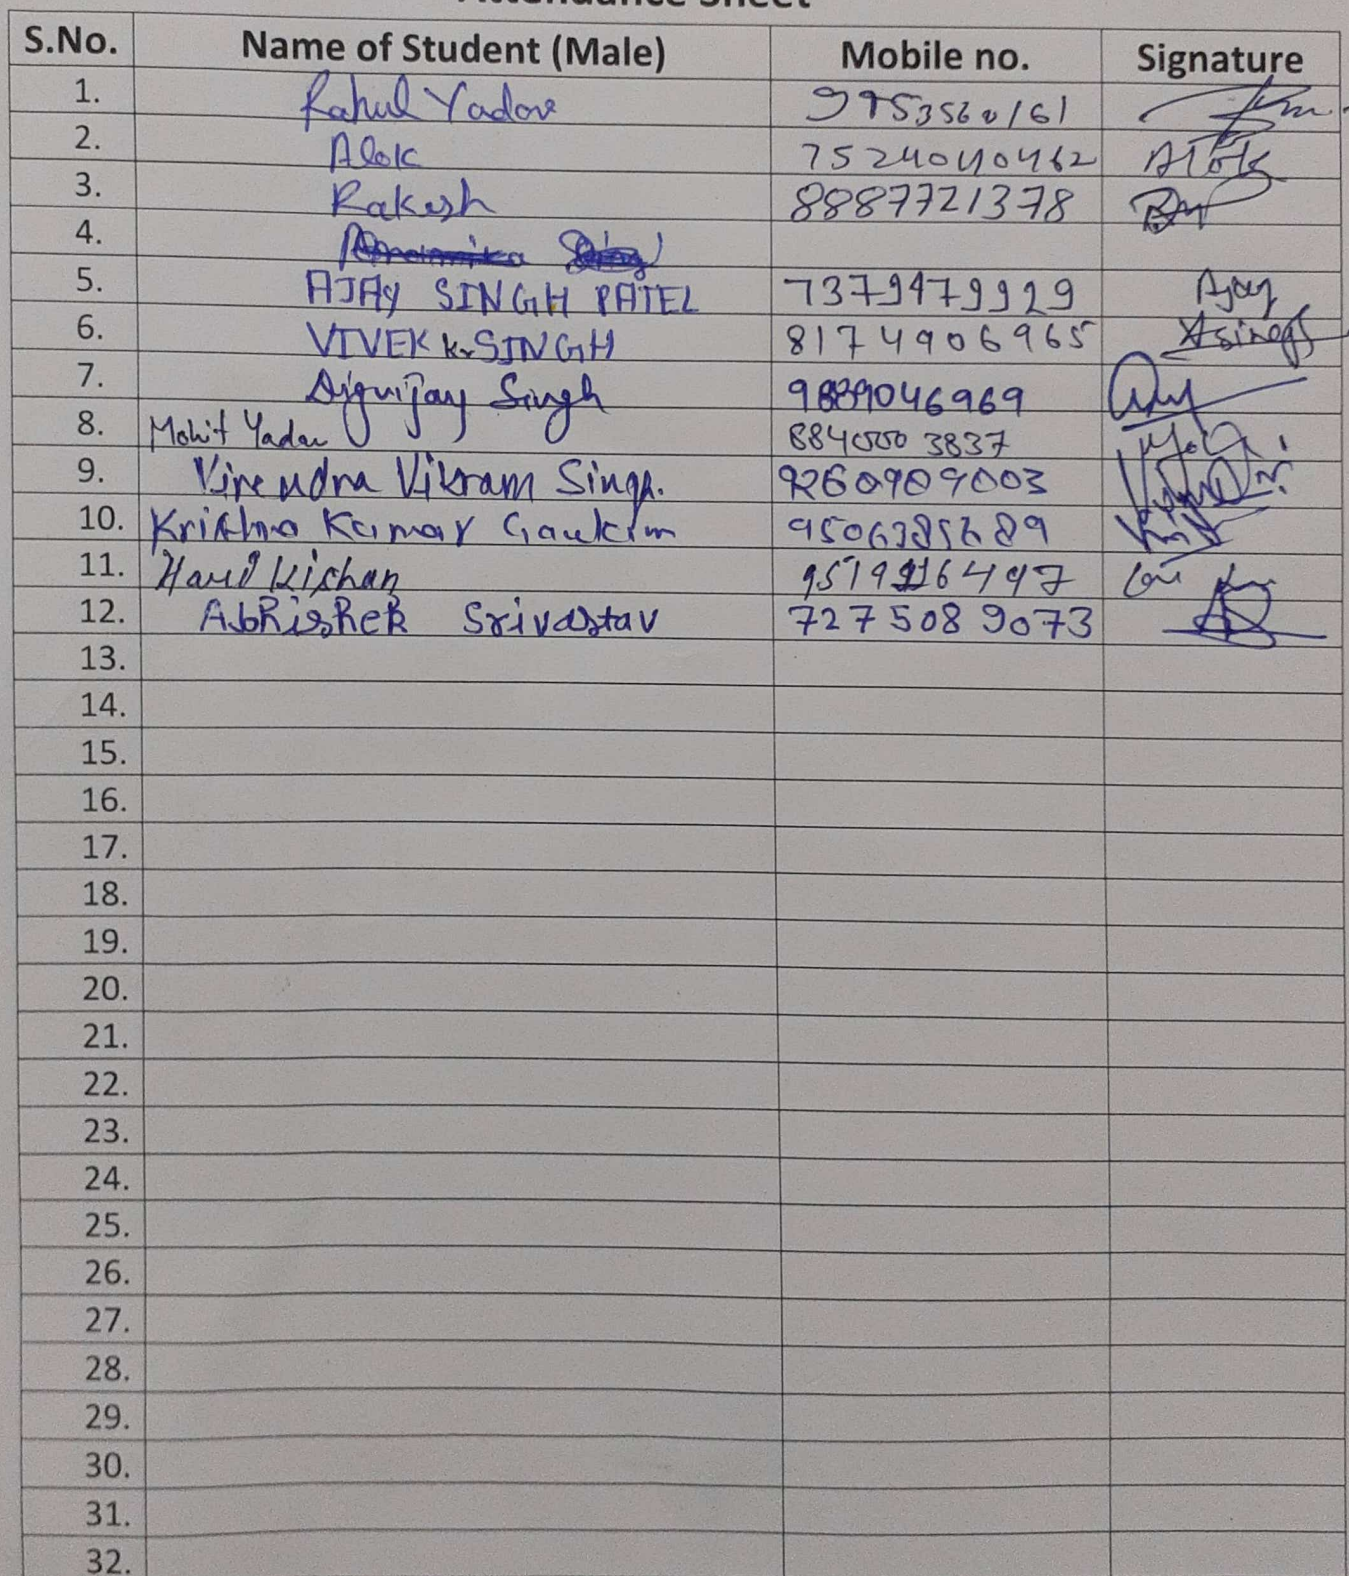 Attendance Sheet
S.No. Name of Student (Male) Mobile no. Signature
1. Rahul Yadav
2. Alok 7524040462 Alok
3. Rakesh 8887721378
4.
5. AJAY SINGH PATEL 7379479929 Ajay
6. VIVEK Kr SINGH 8174906965
7. Digvijay Singh 9889046969
8. Mohit Yadav 8840003837
9. Virendra Vikram Singh. 9260909003
10. Krishna Kumar Gautam
11. Hari Kishan
12. Abhishek Srivastav 7275089073
13.
14.
15.
16.
17.
18.
19.
20.
21.
22.
23.
24.
25.
26.
27.
28.
29.
30.
31.
32.